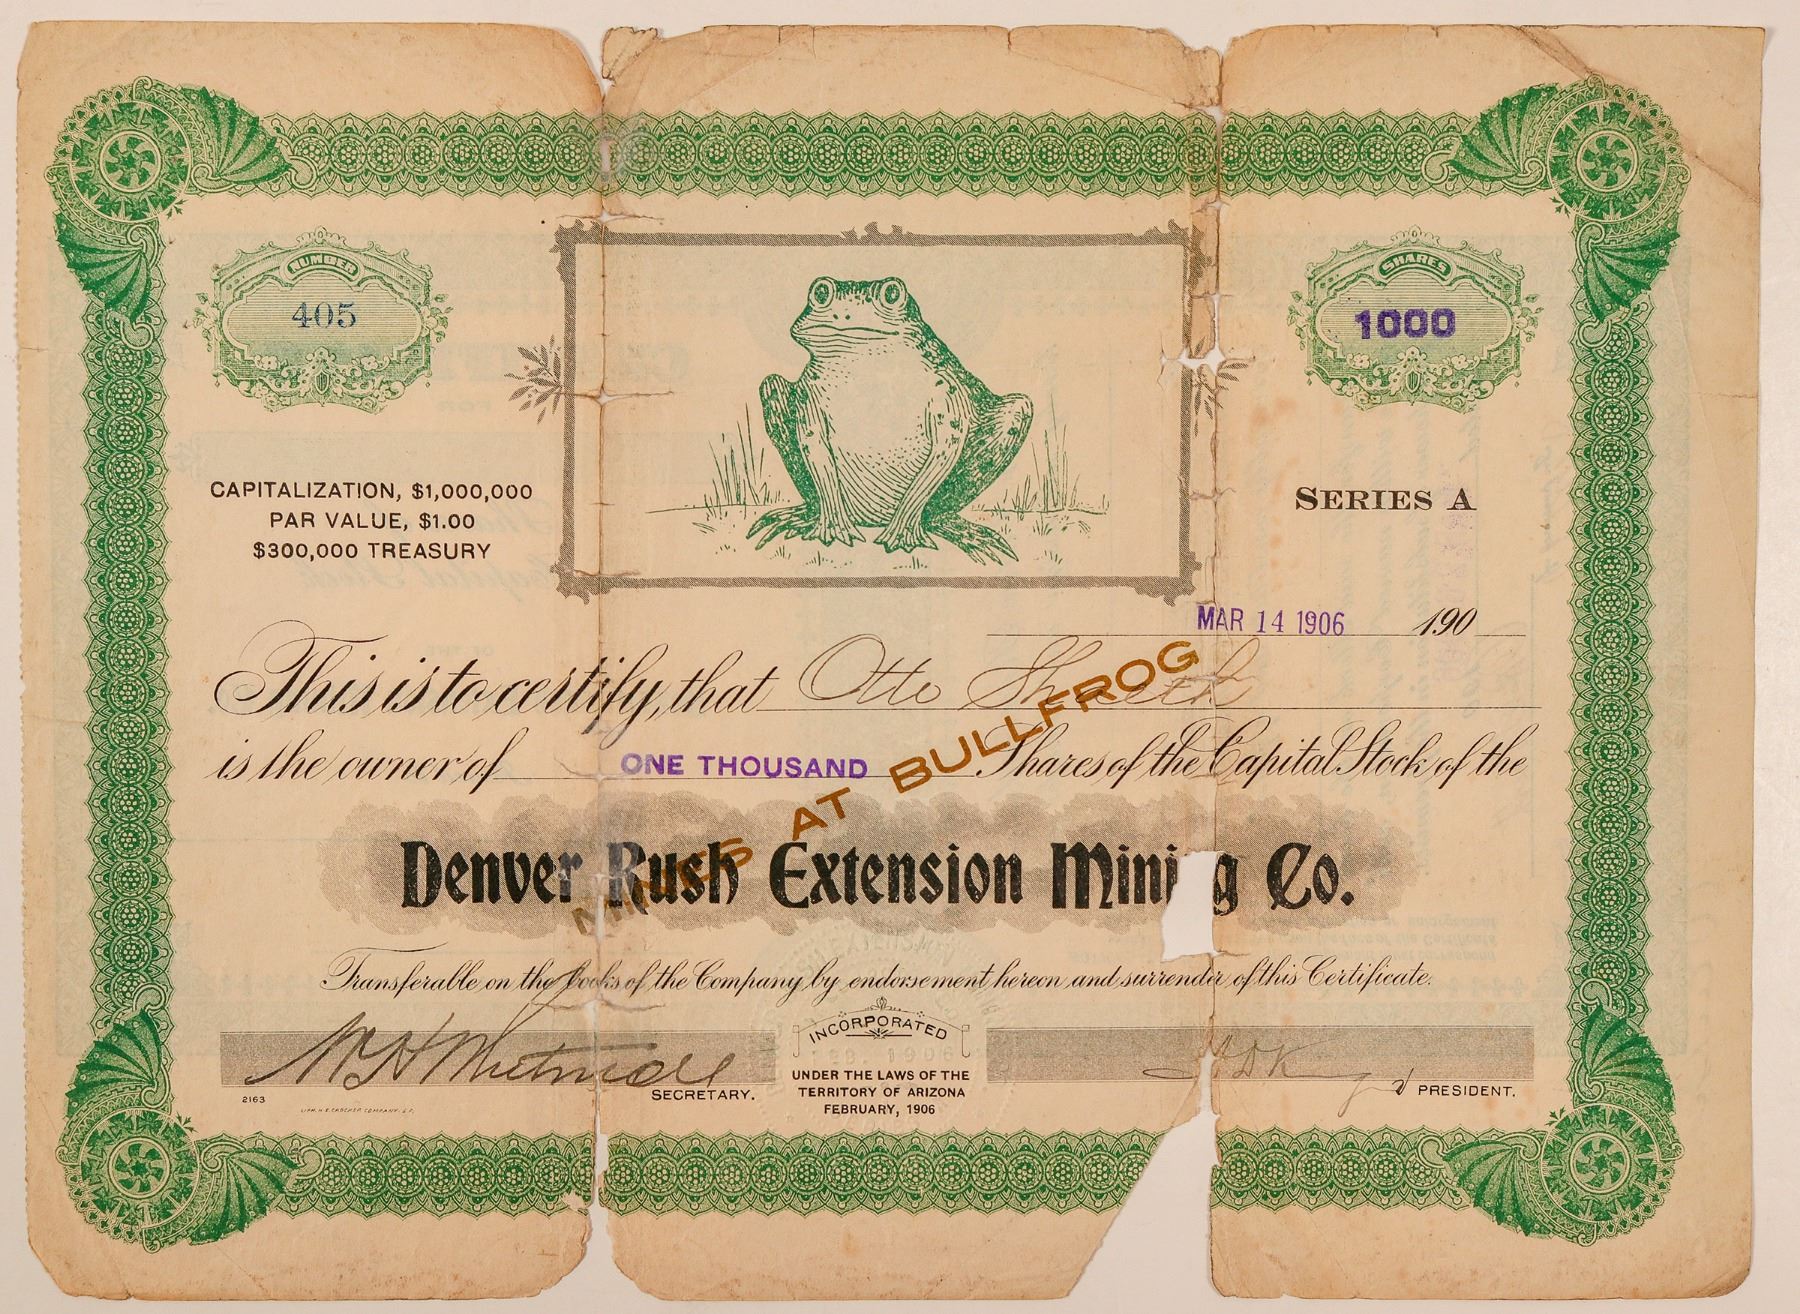 NUMBER
405
SHARES
1000
CAPITALIZATION, $1,000,000
PAR VALUE, $1.00
$300,000 TREASURY
SERIES A
MAR 14 1906 190
This is to certify, that Otto
is the owner of ONE THOUSAND Shares of the Capital Stock of the
MINES AT BULLFROG
Denver Rush Extension Mining Co.
Transferable on the Books of the Company by endorsement hereon and surrender of this Certificate.
INCORPORATED
UNDER THE LAWS OF THE
TERRITORY OF ARIZONA
FEBRUARY, 1906
SECRETARY.
PRESIDENT.
2163
LITH. H.S. CROCKER COMPANY. S.F.